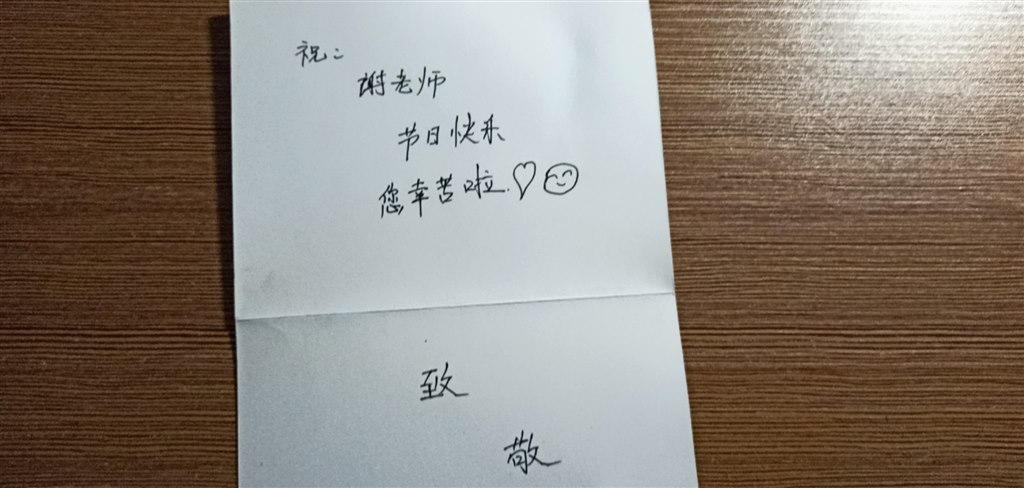 祝:
谢老师
节日快乐
您幸苦啦.♡😊
致
敬